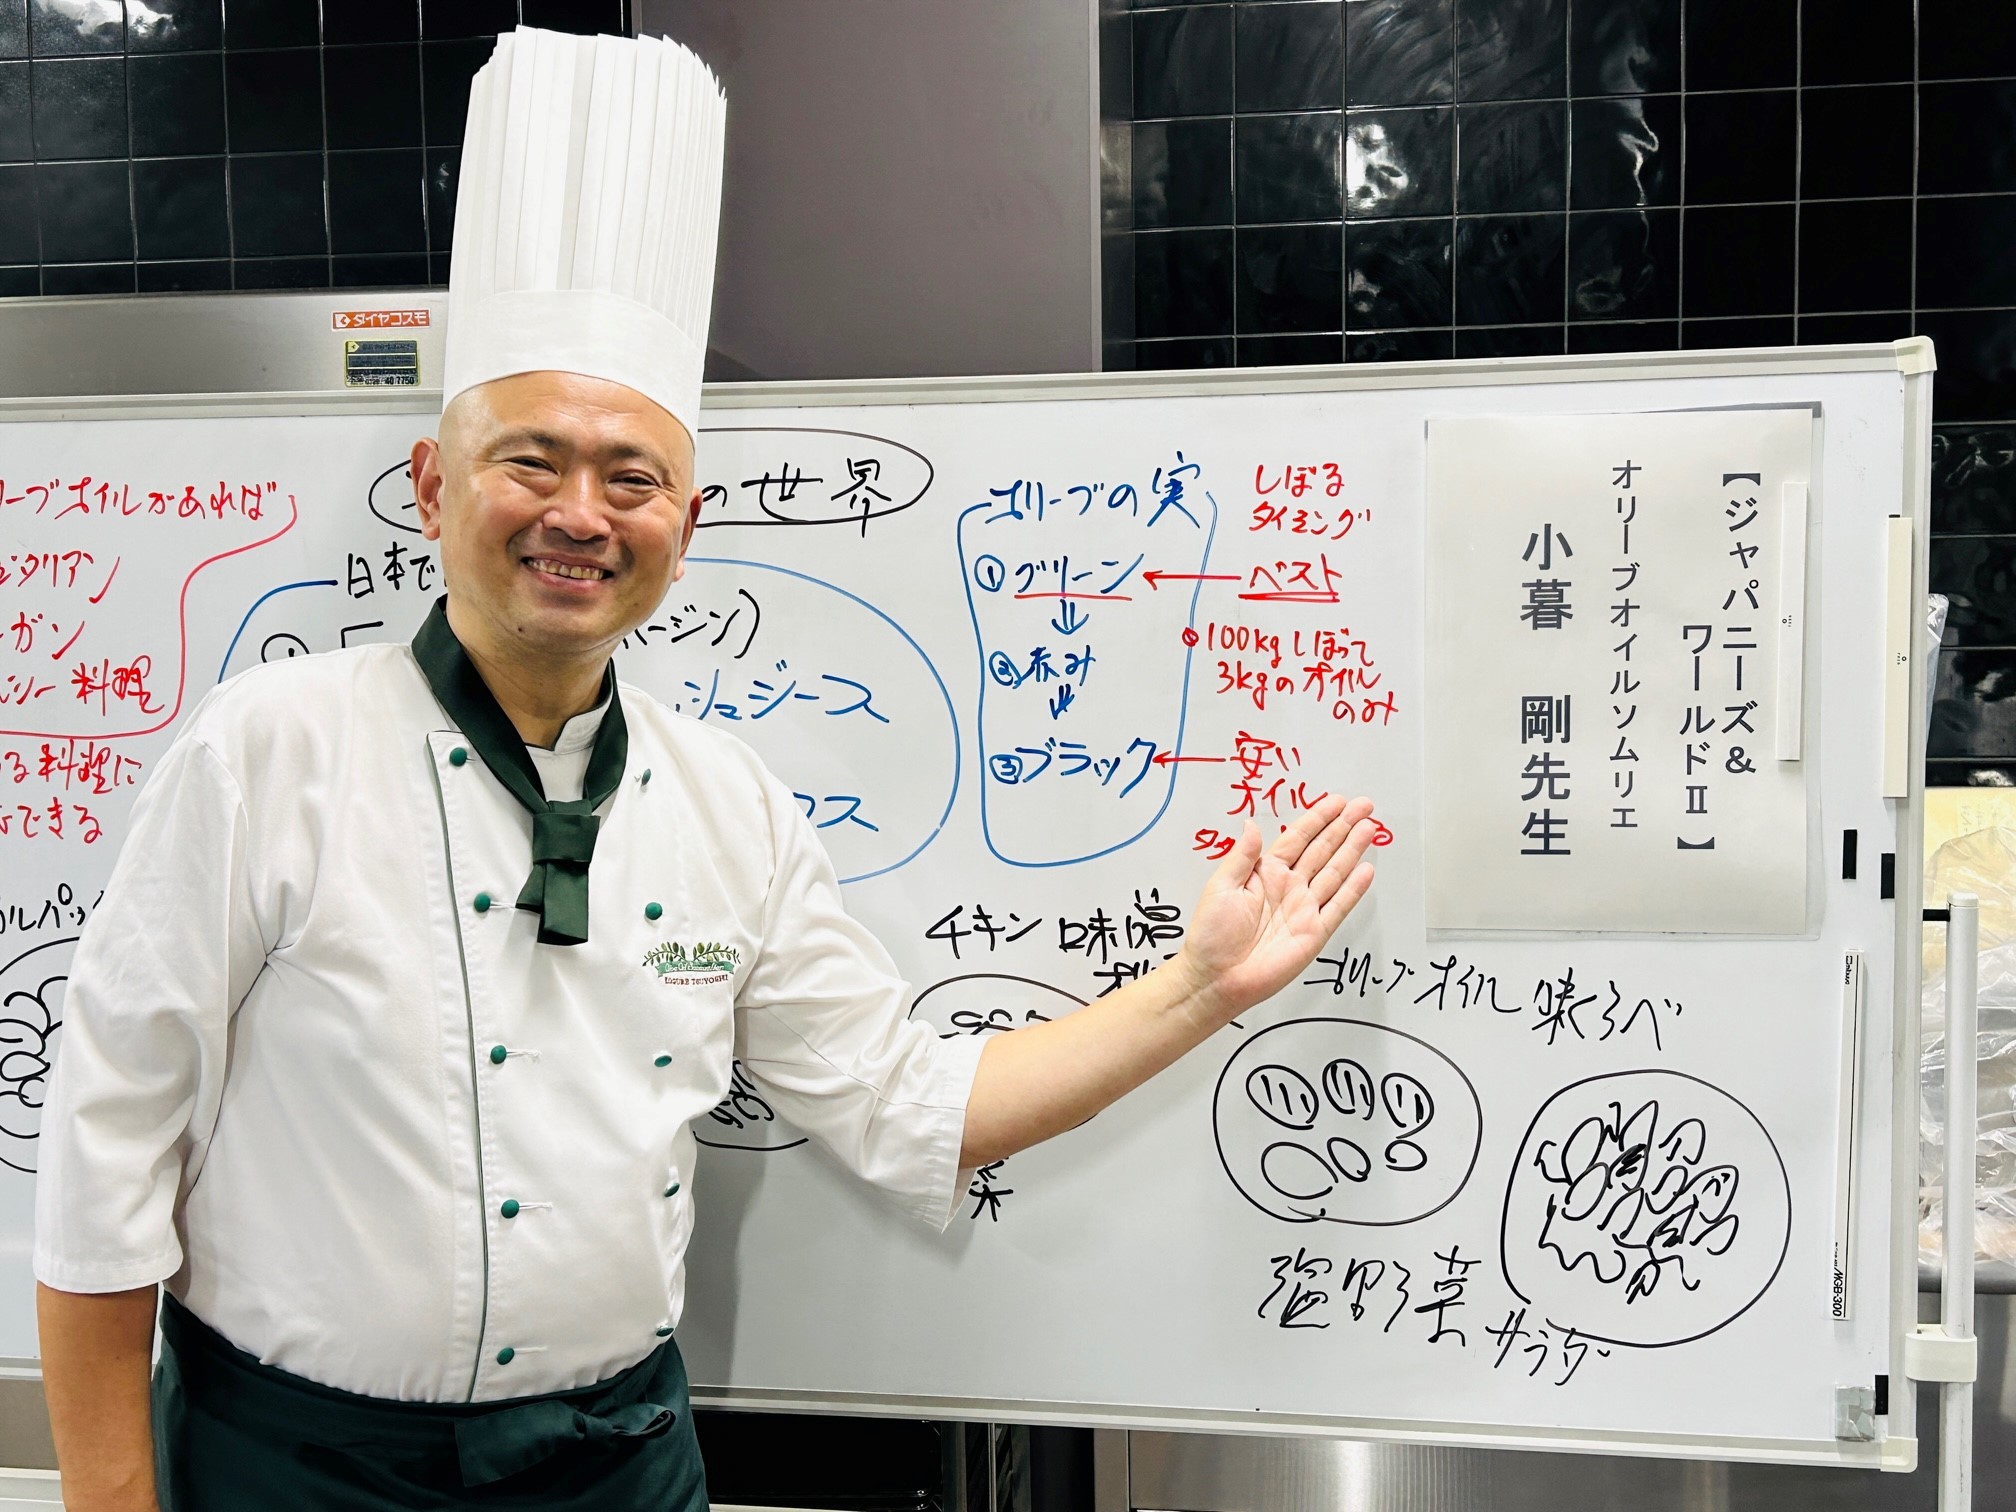 ダイヤコスモ
ーブオイルがあれば
ガン
料理
る料理に
できる
の世界
日本で
ージン)
ジュース
オリーブの実
①グリーン
②赤み
③ブラック
しぼる
タイミング
ベスト
100kgしぼって
3kgのオイル
のみ
安い
オイル
【ジャパニーズ&
ワールドⅡ】
オリーブオイルソムリエ
小暮 剛先生
チキン
オリーブオイル 味くらべ
温野菜
サラダ
KOGURE TSUYOSHI
MGB-300